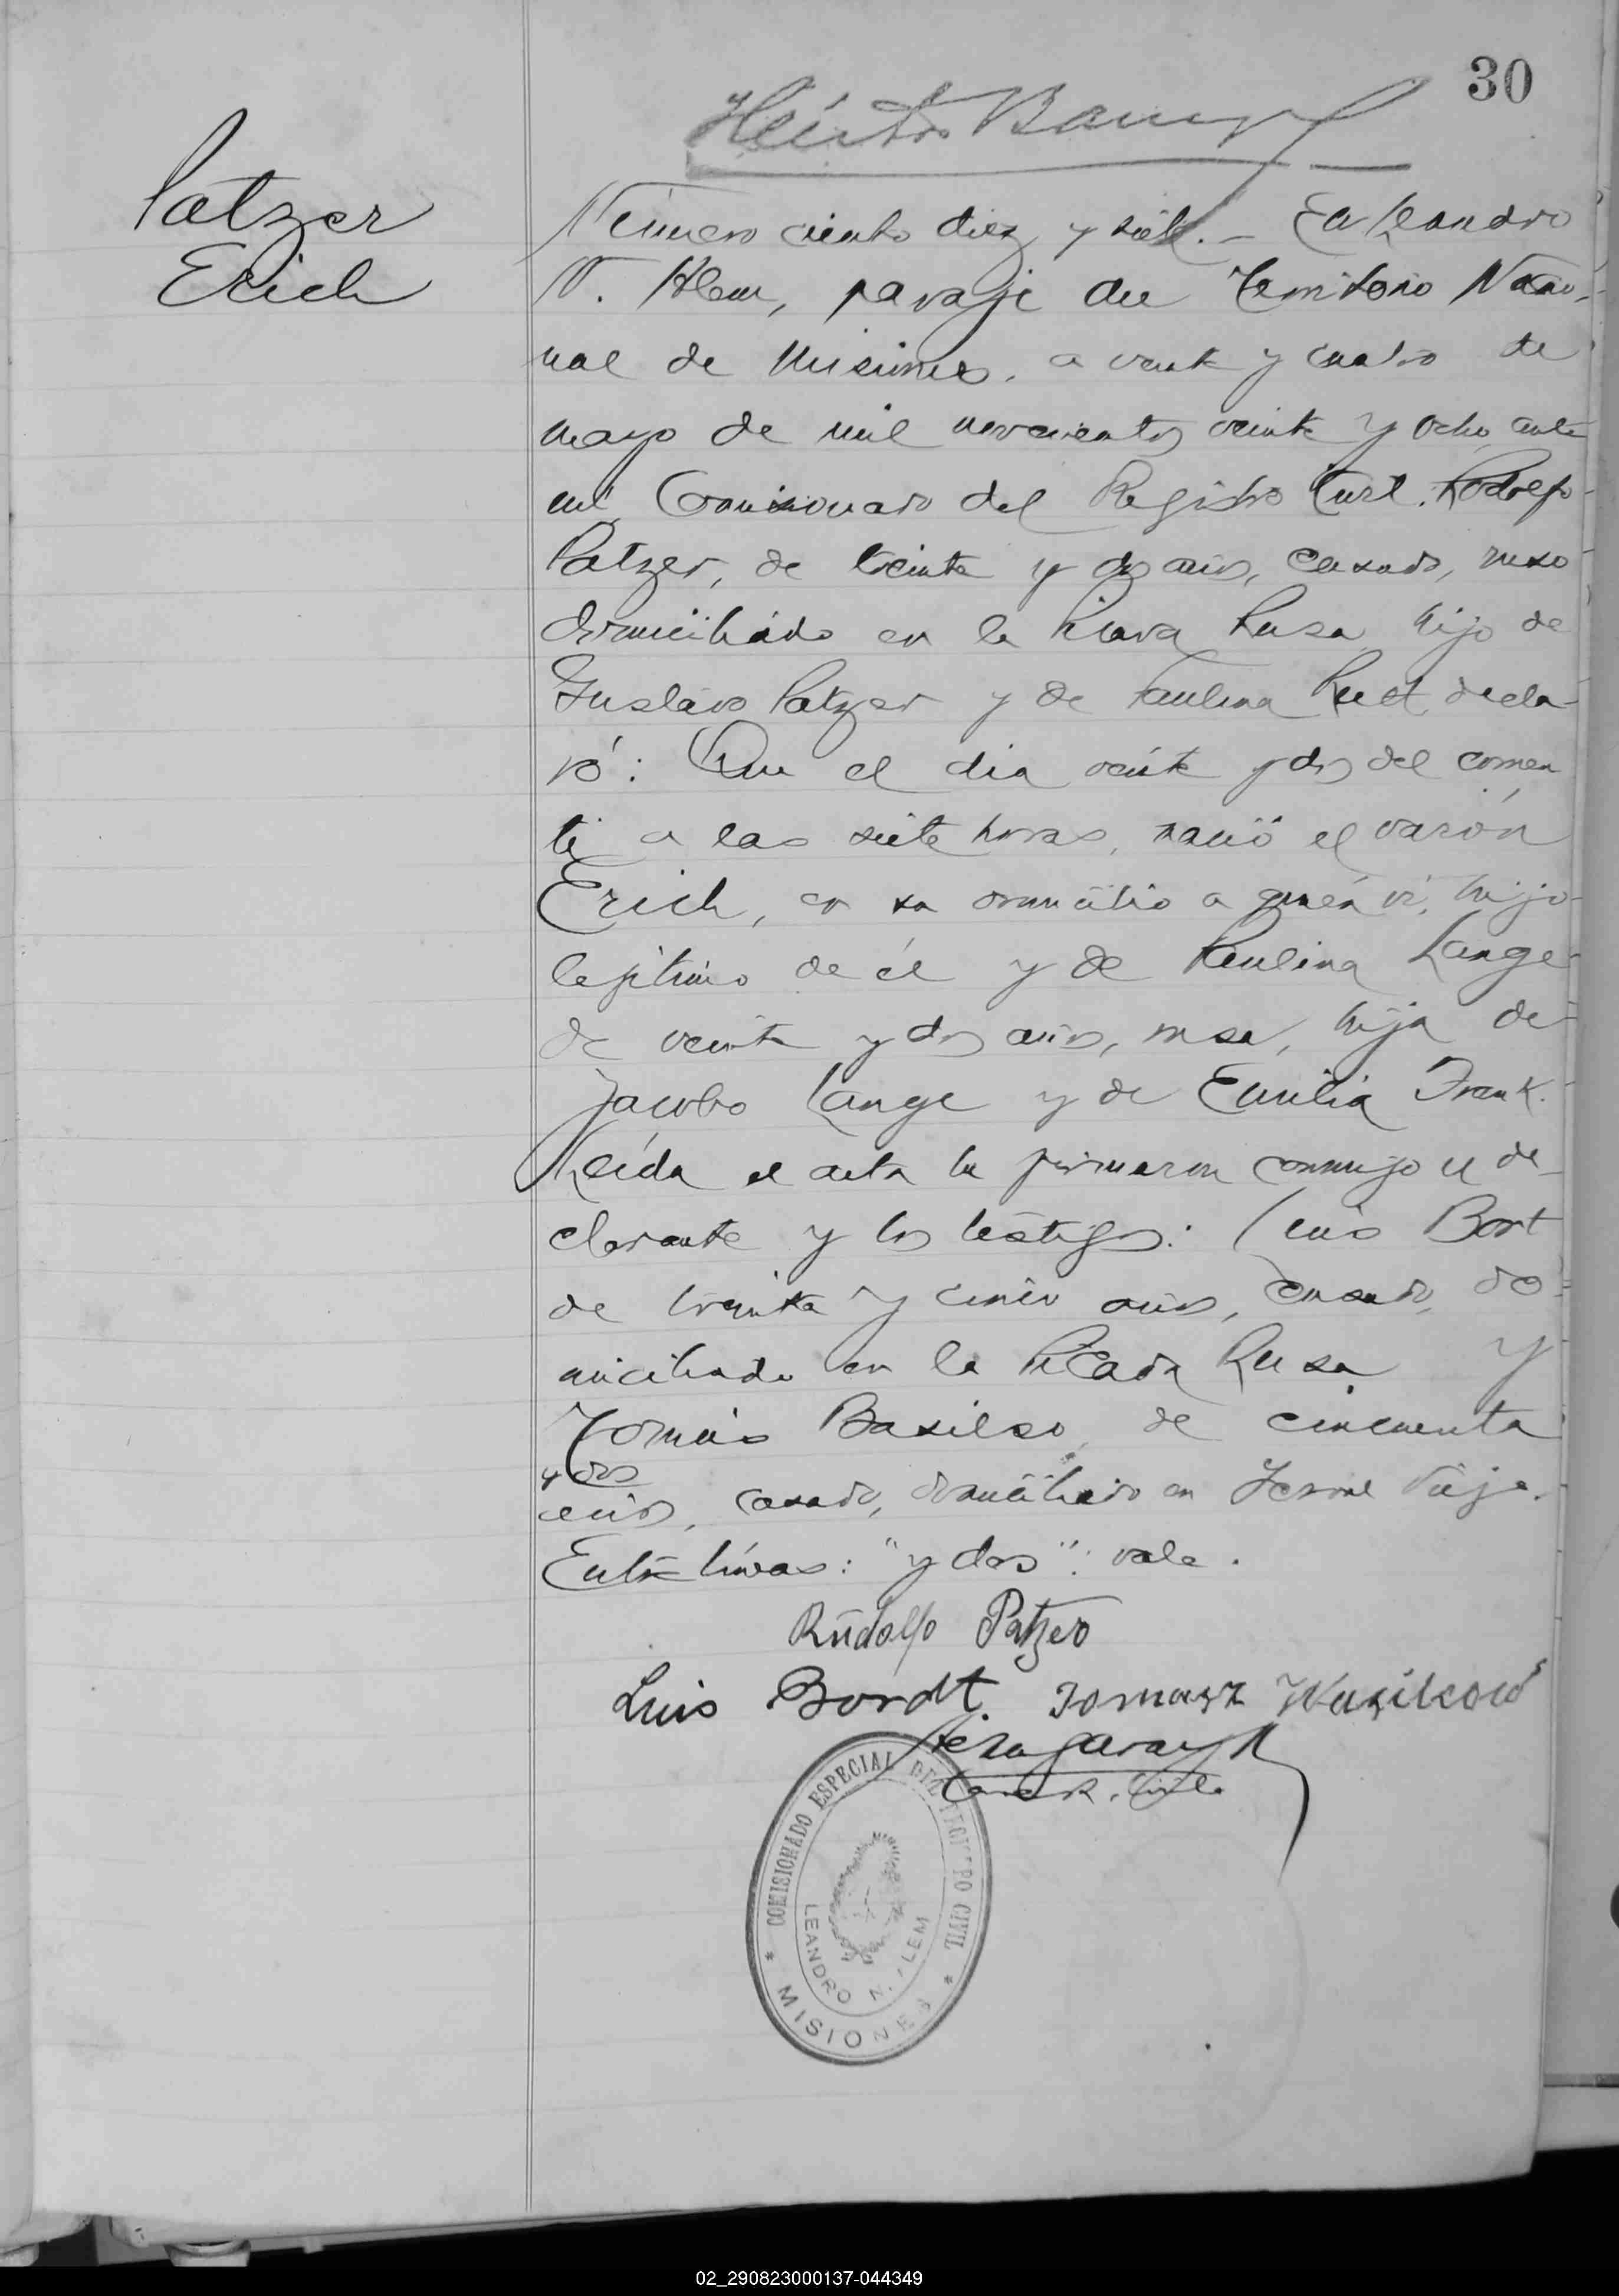 30
Patzer
Erich
Número ciento diez y siete.- En Leandro
N. Alem, paraje del Territorio Nacio-
nal de Misiones, a veinte y cuatro de
mayo de mil novecientos veinte y ocho, ante
mi, Comisionado del Registro Civil, Rodolfo
Patzer, de treinta y dos años, casado, ruso
domiciliado en la Picada Rusa, hijo de
Gustavo Patzer y de Paulina declà-
ró: Que el dia veinte y dos del corrien
te a las siete horas, nació el varón
Erich, en su domicilio a quién vi, hijo
legítimo de él y de Paulina Lange
de veinte y dos años, rusa, hija de
Jacobo Lange y de Emilia Frank.
Leída el acta la firmaron conmigo el de-
clarante y los testigos: Luis Bort
de treinta y cinco años, casado, do-
miciliado en la Picada Rusa y
Tomás Basileo, de cincuenta
y dos
años, casado, domiciliado en Vieja.
Entre líneas: "y dos": vale.
Rudolfo Patzer
Luis Bordt. Tomasz Wasikow
COMISIONADO ESPECIAL DEL REGISTRO CIVIL
LEANDRO N. ALEM
* MISIONES *
02_290823000137-044349